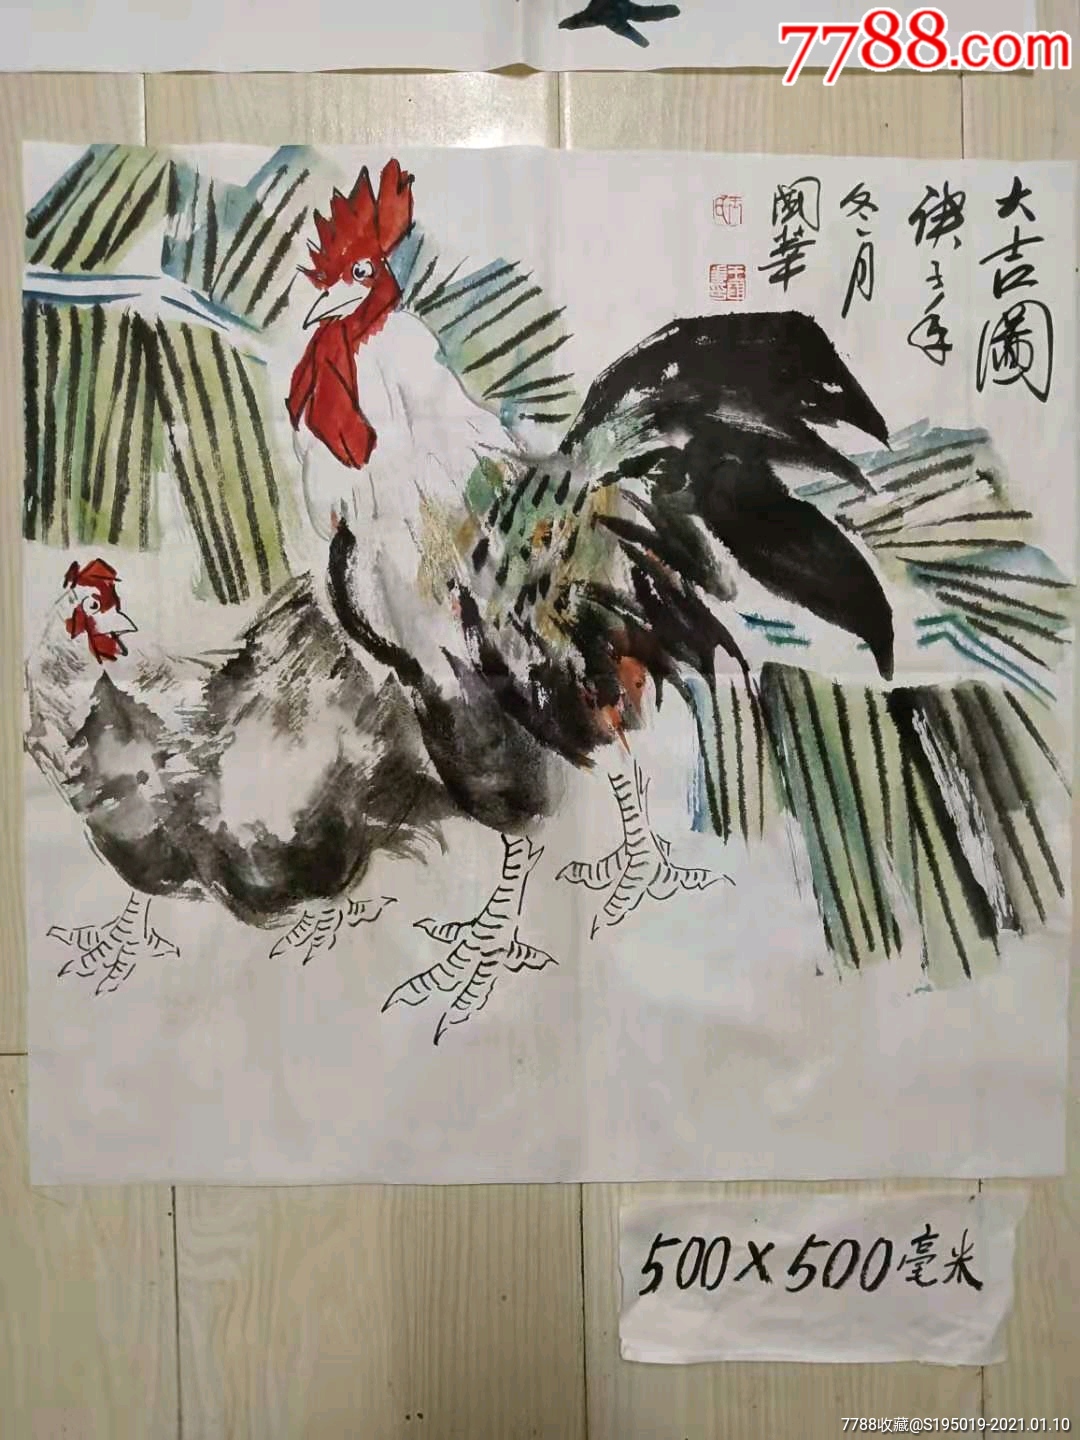 7788.com
大吉圖
庚子年
冬月
國華
500×500毫米
7788收藏@S195019-2021.01.10